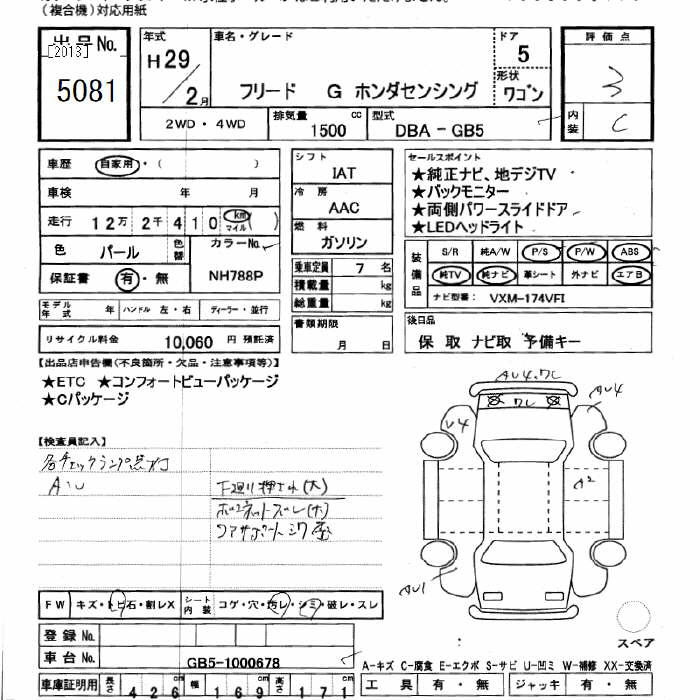 （複合機）対応用紙
出品No.
[2013]
5081
年式
H29/2月
車名・グレード
フリード G ホンダセンシング
ドア
5
形状
ワゴン
評価点
3
内装
C
2WD・4WD
排気量
1500 cc
型式
DBA-GB5
車歴 自家用・( )
車検 年 月
走行 12万2千410 km マイル ( )
色 パール 色替
カラーNo.
NH788P
保証書 有・無
モデル年式 年 ハンドル 左・右 ディーラー・並行
リサイクル料金 10,060 円 預託済
シフト
IAT
冷房
AAC
燃料
ガソリン
乗車定員 7 名
積載量 kg
総重量 kg
書類期限
月 日
セールスポイント
★純正ナビ、地デジTV
★バックモニター
★両側パワースライドドア
★LEDヘッドライト
装備品
S/R 純A/W P/S P/W ABS
純TV 純ナビ 革シート 外ナビ エアB
ナビ型番: VXM-174VFI
後日品
保 取 ナビ取 予備キー
【出品店申告欄(不良箇所・欠品・注意事項等)】
★ETC ★コンフォートビューパッケージ
★Cパッケージ
【検査員記入】
各チェックランプ点灯
AU
下廻り押され(大)
ボンネットズレ(小)
コアサポートシワ
AU4.ワレ
AU4
ワレ
U4
A2
AU1
FW キズ・トビ石・割レX シート内装 コゲ・穴・汚レ・シミ・破レ・スレ
登録No.
車台No.
GB5-1000678
スペア
A-キズ C-腐食 E-エクボ S-サビ U-凹ミ W-補修 XX-交換済
車庫証明用 長さ 426 cm 幅 169 cm 高さ 171 cm
工具 有・無 ジャッキ 有・無